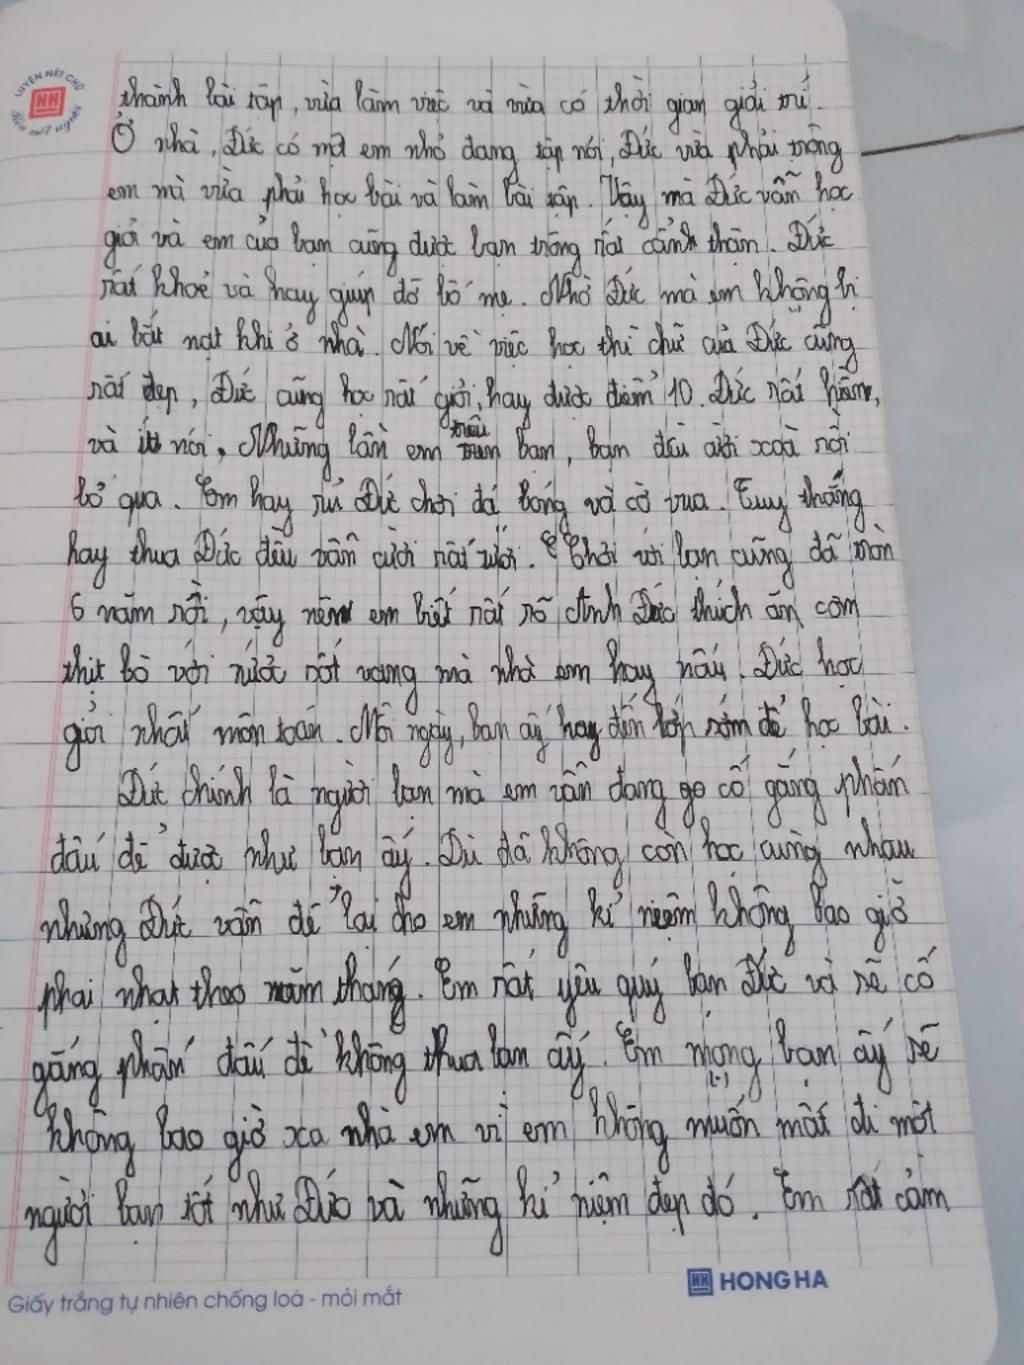 LUYỆN NÉT CHỮ
HH
Rèn nết người
thành bài tập, vừa làm việc và vừa có thời gian giải trí.
Ở nhà, Đức có một em nhỏ đang tập nói, Đức vừa phải trông
em mà vừa phải học bài và làm bài tập. Vậy mà Đức vẫn học
giỏi và em của bạn cũng được bạn trông rất cẩnh thận. Đức
rất khoẻ và hay giúp đỡ bố mẹ. Nhờ Đức mà em không bị
ai bắt nạt khi ở nhà. Nói về việc học thì chữ của Đức cũng
rất đẹp, Đức cũng học rất giỏi, hay được điểm 10. Đức rất hiền,
và ít nói. Những lần em trêu bạn, bạn đều cười xoà rồi
bỏ qua. Em hay rủ Đức chơi đá bóng và cờ vua. Tuy thắng
hay thua Đức đều vẫn cười rất tươi. Chơi với bạn cũng đã tròn
6 năm rồi, vậy nên em biết rất rõ Anh Đức thích ăn cơm
thịt bò với nước sốt vang mà nhà em hay nấu. Đức học
giỏi nhất môn toán. Mỗi ngày, bạn ấy hay đến lớp sớm để học bài.
Đức chính là người bạn mà em vẫn đang cố gắng phấn
đấu để được như bạn ấy. Dù đã không còn học cùng nhau
nhưng Đức vẫn để lại cho em những kỉ niệm không bao giờ
phai nhạt theo năm tháng. Em rất yêu quý bạn Đức và sẽ cố
gắng phấn đấu để không thua bạn ấy. Em mong bạn ấy sẽ
không bao giờ xa nhà em vì em không muốn mất đi một
người bạn tốt như Đức và những kỉ niệm đẹp đó. Em rất cảm
HH HONG HA
Giấy trắng tự nhiên chống loá - mỏi mắt